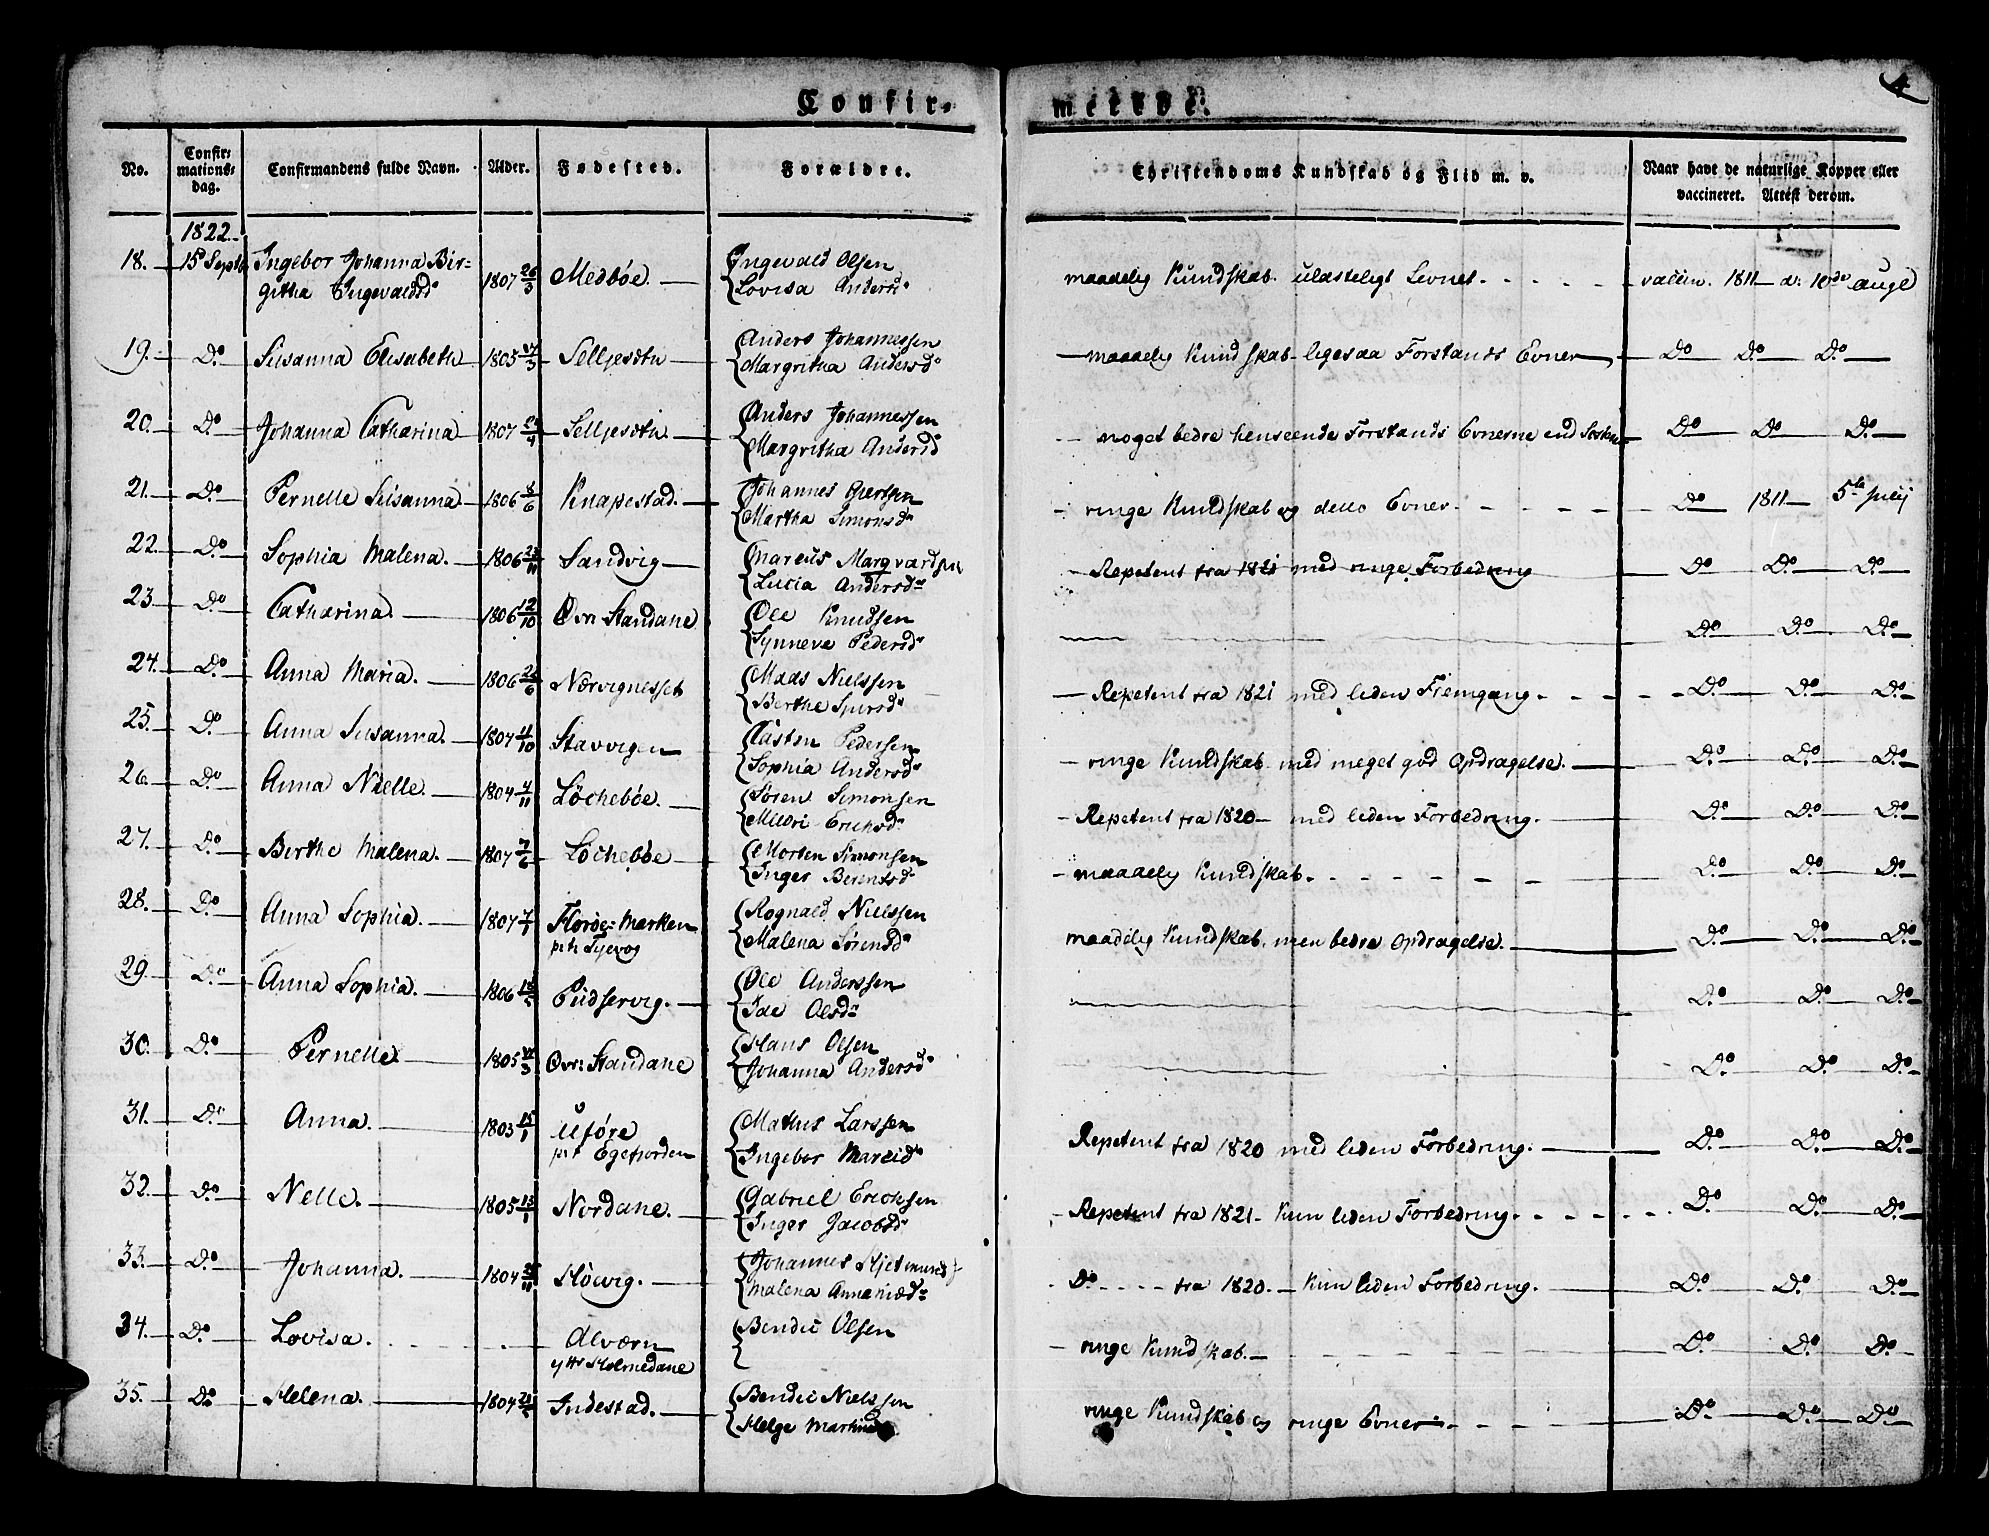 Confir-
meerde.
4
No.
Confir-
mations-
dag.
Confirmandens fulde Navn.
Alder.
Fødested.
Forældre.
Christendoms Kundskab og Flid m. v.
Naar havt de naturlige Kopper eller
vaccineret. Attest derom.
1822.
18. 15d Septb Ingebor Johanna Bir-
githa Ingevaldsd 1807 26/3 Medbøe. Ingevald Olsen
Lovisa Andersd
maadelig Kundskab ulasteligt Levnet. vaccin. 1811 d: 10de aug
19. Do Susanna Elisabeth 1805 17/3 Selljesæth Anders Johannessen
Margritha Andersd
maadelig Kundskab ligesaa Forstands Evner Do Do Do
20. Do Johanna Catharina 1807 /4 Selljesæth. Anders Johannessen
Margritha Andersd
noget bedre henseende Forstands Evnerne end Do Do Do
21. Do Pernelle Susanna 1806 8/6 Knapestad. Johannes
Martha Simonsd
ringe Kundskab og dello Evner. Do 1811 5te July
22. Do Sophia Malena. 1806 /11 Sandvig Marcus Marqvardsen
Lucia Andersd
Repetent fra 1821 med ringe Forbedring Do Do Do
23. Do Catharina. 1806 12/10 Ovn Standane Ole Knudsen
Synneve Pedersd
Do Do Do
24. Do Anna Maria. 1806 /6 Nærvignesset Mads Nielssen
Berthe Siursd
Repetent fra 1821 med liden Fremgang. Do Do Do
25. Do Anna Susanna. 1807 11/10 Stavvigen Casten Pedersen
Sophia Andersd
ringe Kundskab med meget god Opdragelse. Do Do Do
26. Do Anna Nielle. 1804 4/11 Löchebøe. Søren Simonsen
Erichsd
Repetent fra 1820 med liden Forbedring. Do Do Do
27. Do Berthe Malena. 1807 7/6 Löchebøe Morten Simonsen
Inger Berentsd
maadelig Kundskab. Do Do Do
28. Do Anna Sophia. 1807 7/1 Florøe-Marken
Rognald Nielssen
Malena Sørensd
maadelig Kundskab, men bedre Opdragelse. Do Do Do
29. Do Anna Sophia. 1806 Pudservig. Ole Anderssen
Ide Olsd
Do Do Do
30. Do Pernelle 1805 /3 Ovn: Standane Hans Olsen
Johanna Andersd
Do Do Do
31. Do Anna. 1803 15/1 Uføre
pst Egefiorden Mathis Larssen
Ingebor Marcisd
Repetent fra 1820 med liden Forbedring. Do Do Do
32. Do Nelle. 1805 13/1 Nordane. Gabriel Erichsen
Inger Jacobsd
Repetent fra 1821 Kun liden Forbedring. Do Do Do
33. Do Johanna. 1804 /11 Høevig. Johannes
Malena
Do fra 1820. Kun liden Forbedring. Do Do Do
34. Do Lovisa. Alværn
ytre Holmedane Bendic Olsen
ringe Kundskab. Do Do Do
35. Do Helena. 1804 Indestad. Bendic Nielssen
Helge
ringe Kundskab og ringe Evner Do Do Do